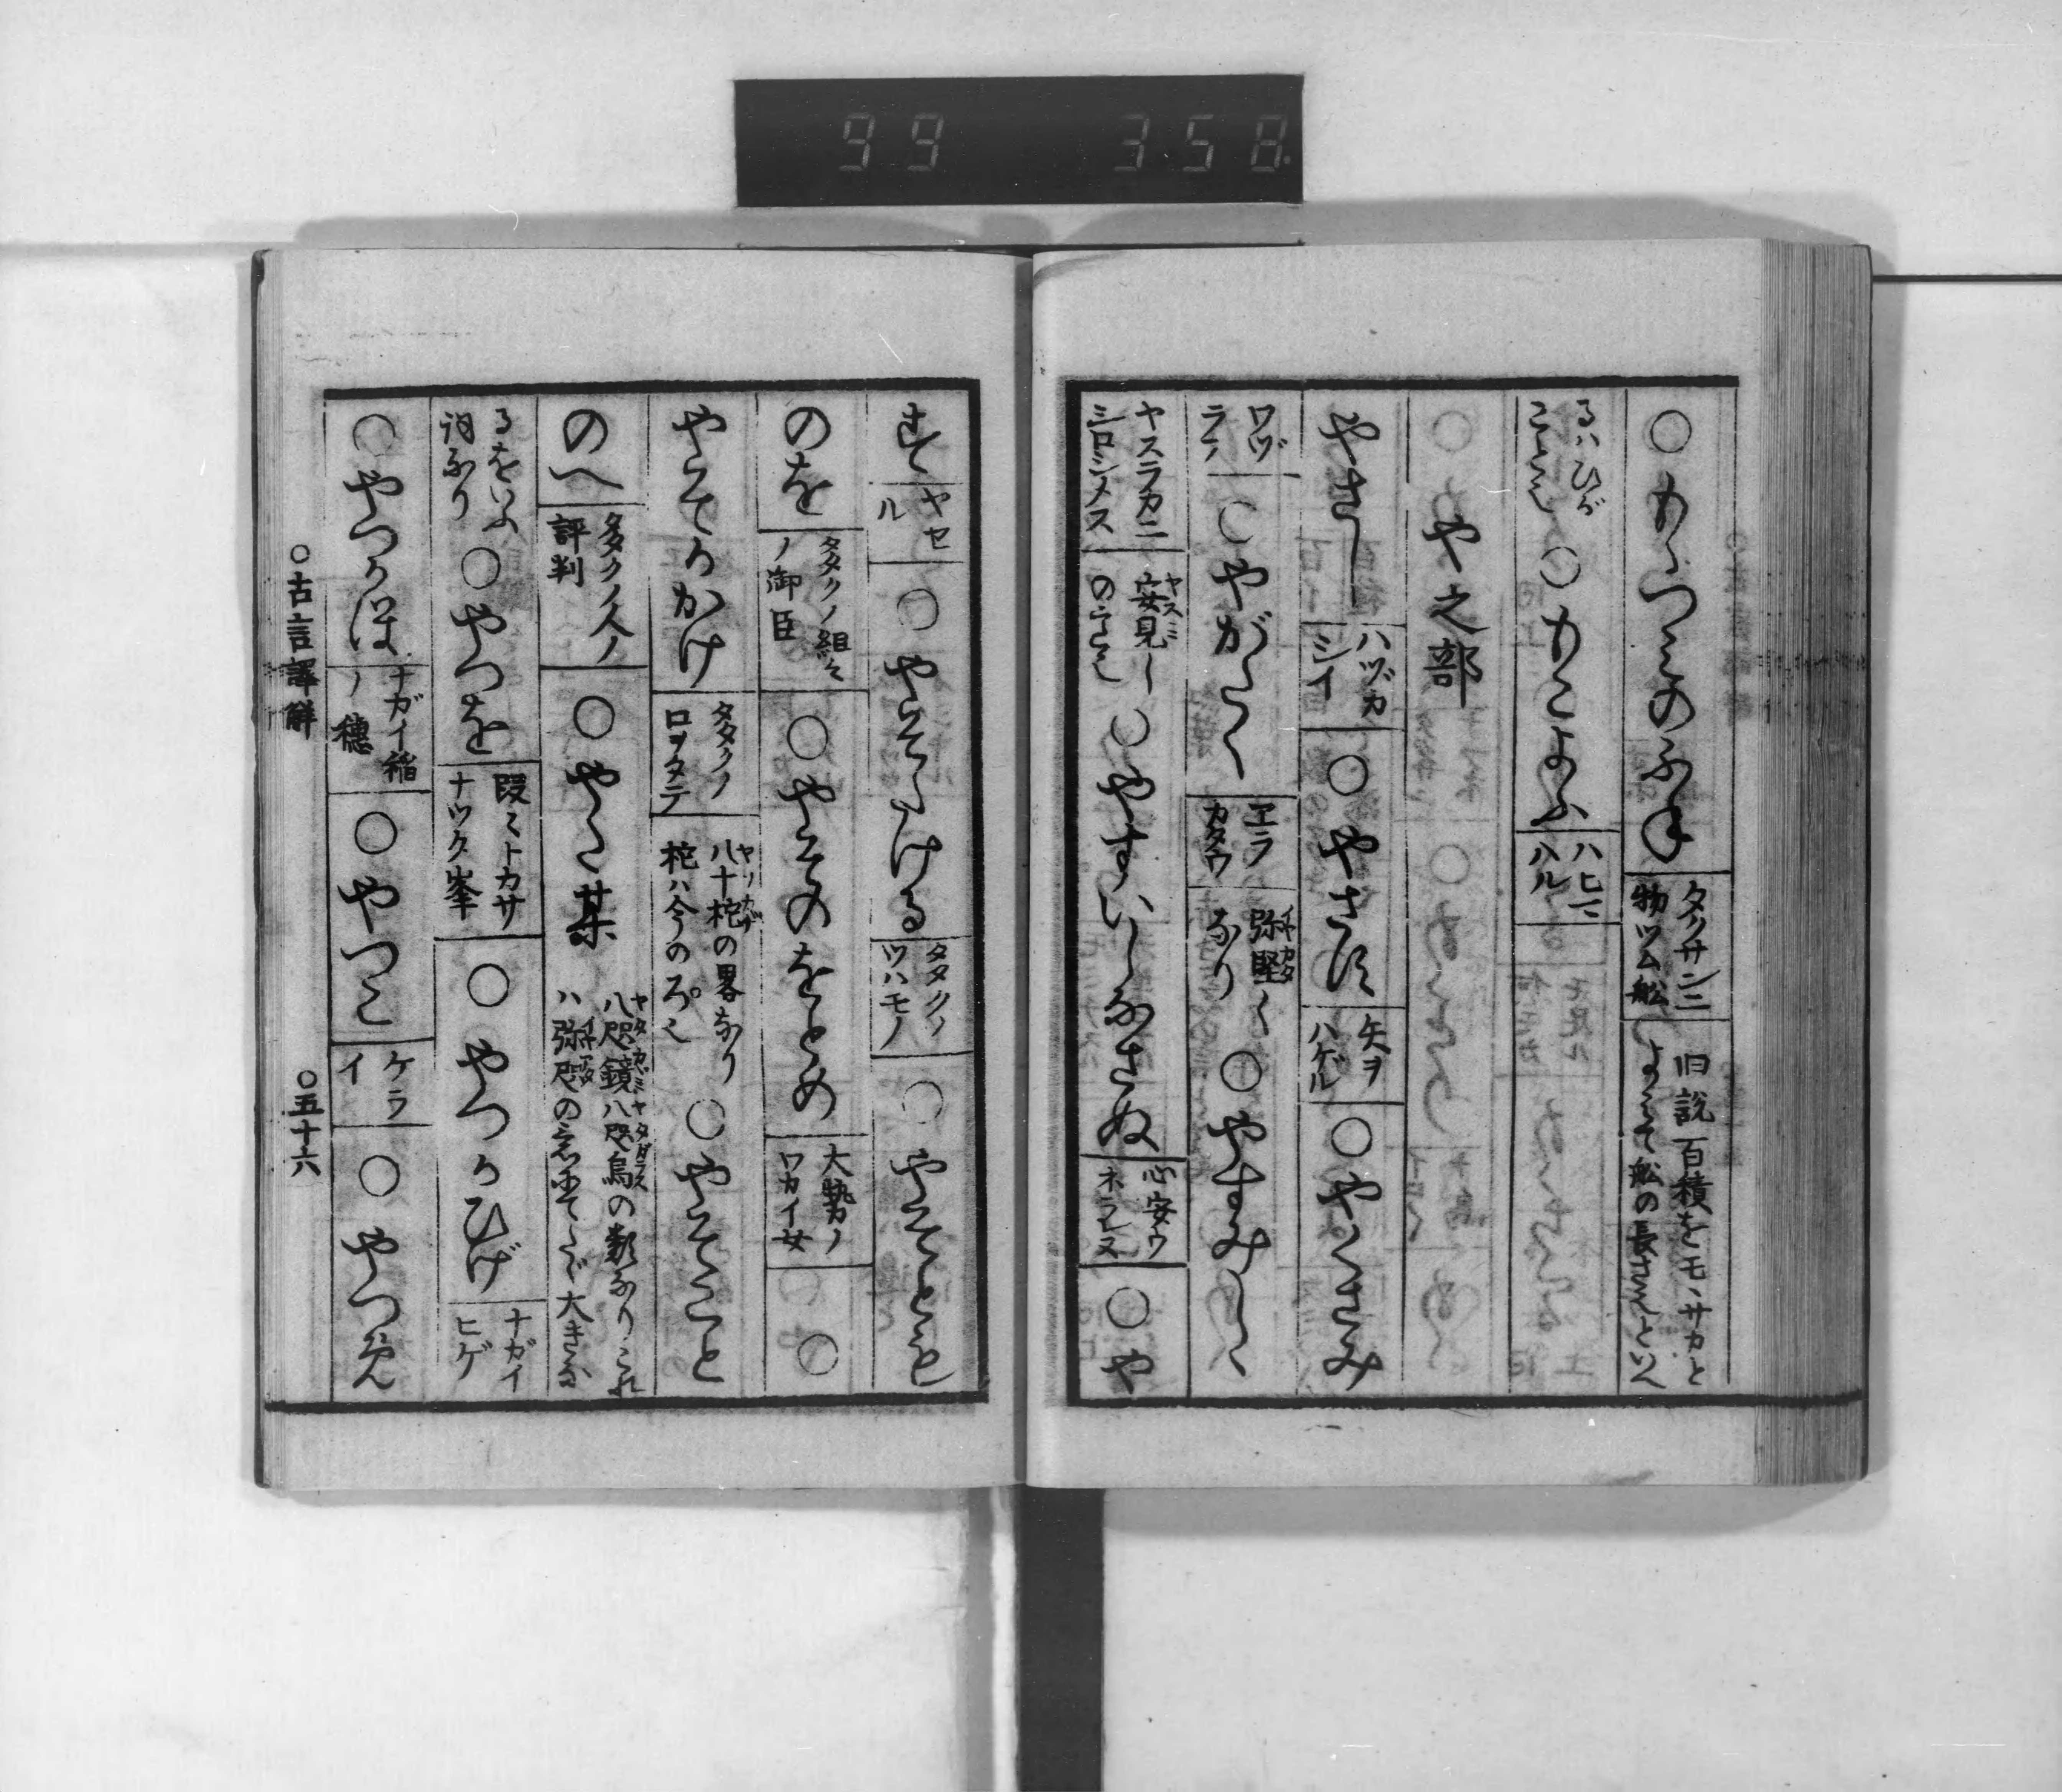 99 358
○もゝつミのふね タクサンニ物ツム舩 旧説百積をモヽサカとよみて舩の長さ也といへ
るハひがこと也 ○もこよふ ハヒマハル
○や之部
やさし ハヅカシイ ○やさは 矢ヲハゲル ○やくさみ
ワヅラフ ○やがたく エラカタウ 弥堅くなり ○やすみしゝ
ヤスラカニシロシメス 安見しの意也 ○やすいしなさぬ 心安ウネラレヌ ○や
すく ヤセル ○やそたける タタクノツハモノ ○やそとも
のを タタクノ組々ノ御臣 ○やそのをとめ 大勢ノワカイ女 ○
やそかかけ タタクノロヲタテ 八十柁の畧なり柁ハ今のろ也 ○やそこと
のへ 多クノ人ノ評判 ○やた某 八咫鏡八咫烏の類なりこれハ弥咫の意にてたゞ大きな
るをいふ詞なり ○やつを 段々トカサナツク峯 ○やつかひげ ナガイヒゲ
○やつかほ ナガイ稲ノ穂 ○やつこ ケライ ○やつめ
○古言譯解 ○五十六